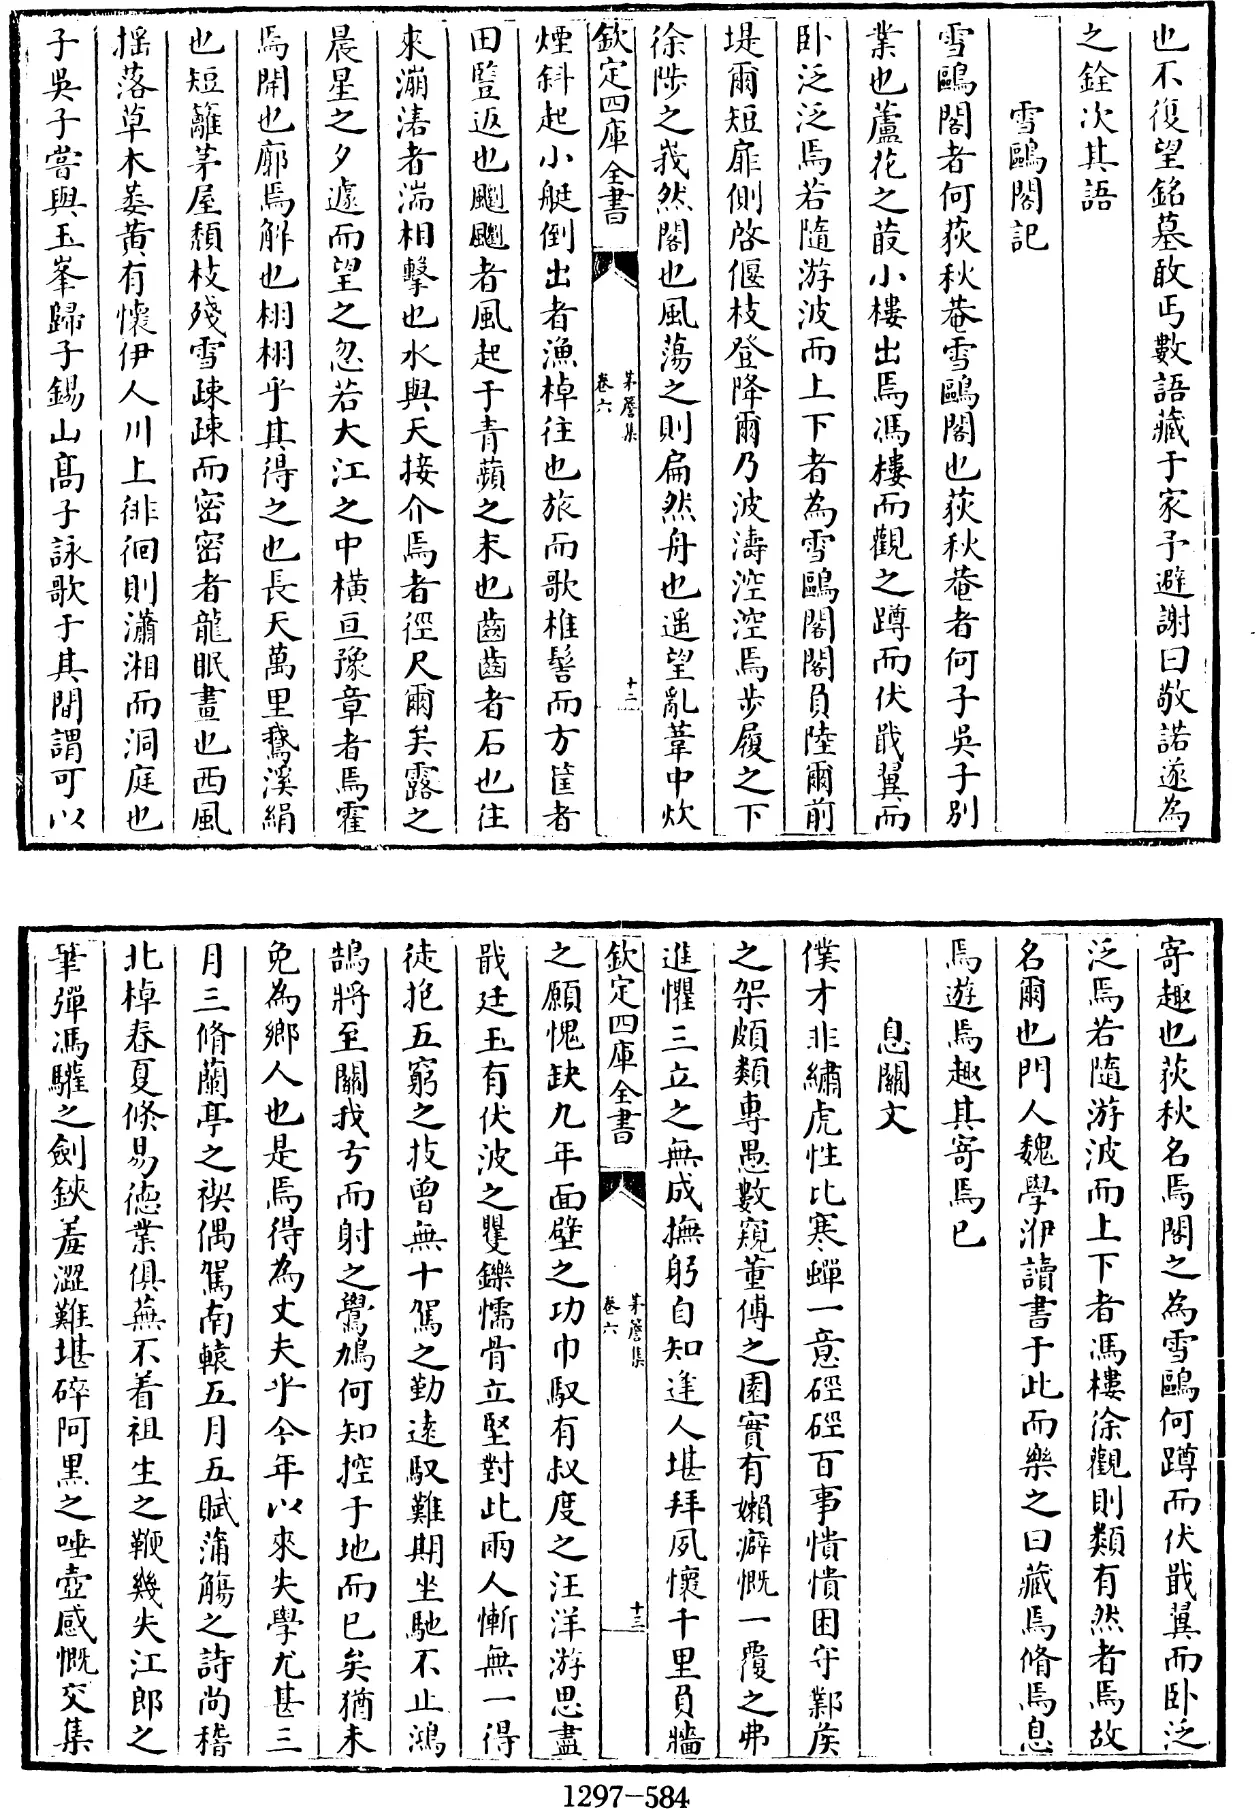 也不復望銘墓敢丐數語藏于家予避謝曰敬諾遂為
之銓次其語
雪鷗閣記
雪鷗閣者何荻秋菴雪鷗閣也荻秋菴者何子吳子别
業也蘆花之菆小樓出焉馮樓而觀之蹲而伏戢翼而
卧泛泛焉若隨游波而上下者為雪鷗閣閣負陸爾前
堤爾短扉側啓偃枝登降爾乃波濤涳涳焉步履之下
徐陟之峩然閣也風蕩之則扁然舟也遥望亂葦中炊
欽定四庫全書
茅簷集
卷六
十二
煙斜起小艇倒出者漁棹往也旅而歌椎髻而方筐者
田豎返也颸颸者風起于青蘋之末也齒齒者石也往
來漰濤者湍相擊也水與天接介焉者徑尺爾矣露之
晨星之夕遽而望之忽若大江之中橫亘豫章者焉霍
焉開也廓焉解也栩栩乎其得之也長天萬里鵞溪絹
也短籬茅屋頽枝殘雪疎疎而密密者龍眠畫也西風
揺落草木萎黄有懷伊人川上徘徊則瀟湘而洞庭也
子吳子嘗與玉峯歸子錫山髙子詠歌于其間謂可以
寄趣也荻秋名焉閣之為雪鷗何蹲而伏戢翼而卧泛
泛焉若隨游波而上下者馮樓徐觀則類有然者焉故
名爾也門人魏學洢讀書于此而樂之曰藏焉脩焉息
焉遊焉趣其寄焉已
息關文
僕才非繡虎性比寒蟬一意硜硜百事憒憒困守鄴矦
之架頗類專愚數窺董傅之園實有嬾癖慨一覆之弗
進懼三立之無成撫躬自知逢人堪拜夙懷千里負牆
欽定四庫全書
茅簷集
卷六
十三
之願愧缺九年面壁之功巾馭有叔度之汪洋游思盡
戢廷玉有伏波之矍鑠懦骨立堅對此兩人慚無一得
徒抱五窮之技曾無十駕之勤遠馭難期坐馳不止鴻
鵠將至關我弓而射之鷽鳩何知控于地而已矣猶未
免為鄉人也是焉得為丈夫乎今年以來失學尤甚三
月三脩蘭亭之禊偶駕南轅五月五賦蒲觴之詩尚稽
北棹春夏倐易徳業俱蕪不着祖生之鞭幾失江郎之
筆彈馮驩之劍鋏羞澀難堪碎阿黒之唾壺感慨交集
1297-584